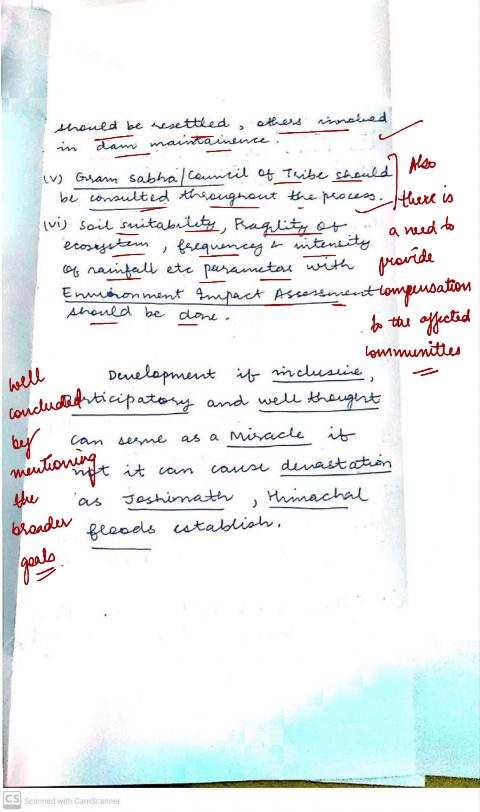 should be resettled, others involved
in dam maintainence.
(v) Gram Sabha/Council of Tribe should
be consulted throughout the process.
(vi) Soil suitability, Fragility of
ecosystem, frequency & intensity
of rainfall etc parameters with
Environment Impact Assessment
should be done.
Also
there is
a need to
provide
compensation
to the affected
communities
Development if inclusive,
participatory and well thought
can serve as a Miracle if
not it can cause devastation
as Joshimath, Himachal
floods establish.
Well
concluded
by
mentioning
the
broader
goals.
CS Scanned with CamScanner